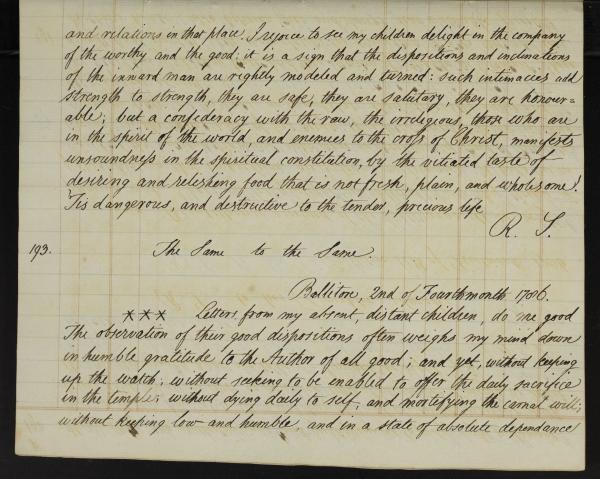 and relations in that place. I rejoice to see my children delight in the company
of the worthy and the good: it is a sign that the dispositions and inclinations
of the inward man are rightly modeled and turned: such intimacies add
strength to strength, they are safe, they are salutary, they are honour=
able; but a confederacy with the raw, the irreligious, those who are
in the spirit of the world, and enemies to the cross of Christ, manifests
unsoundness in the spiritual constitution, by the vitiated taste of
desiring and relishing food that is not fresh, plain, and wholesome!
'Tis dangerous, and destructive to the tender, precious life
R. S.
193. The Same to the Same.
Ballitore, 2nd of Fourthmonth 1786.
x x x Letters from my absent, distant children, do me good
The observation of their good dispositions often weighs my mind down
in humble gratitude to the Author of all good; and yet, without keeping
up the watch; without seeking to be enabled to offer the daily sacrifice
in the temple; without dying daily to self, and mortifying the carnal will;
without keeping low and humble, and in a state of absolute dependance